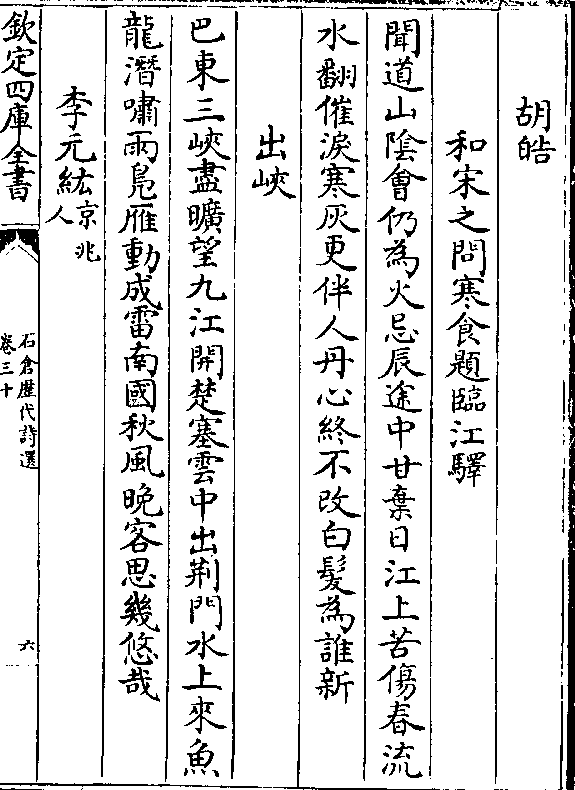 胡皓
和宋之問寒食題臨江驛
聞道山陰會仍為火忌辰途中甘棄日江上苦傷春流
水翻催淚寒灰更伴人丹心終不改白髮為誰新
出峽
巴東三峽盡曠望九江開楚塞雲中出荆門水上來魚
龍潛嘯雨鳬雁動成雷南國秋風晚客思幾悠哉
李元紘京兆人
欽定四庫全書
石倉歴代詩選
卷三十
六